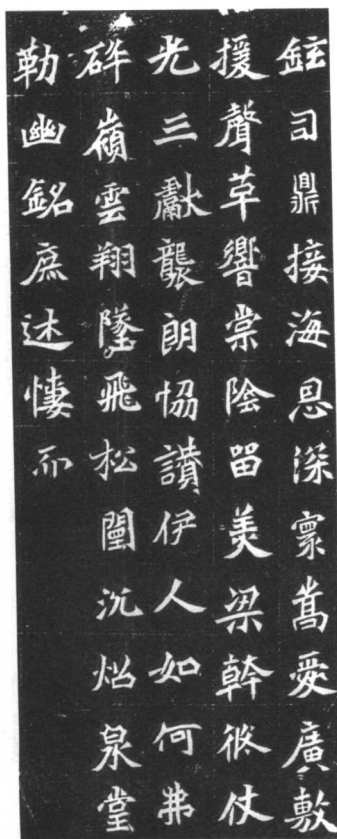 鉉司鼎接海息深寡嵩愛廣敷
援聲革響棠陰留美梁幹攸仗
光三獻襲朗協讚伊人如何弗
碎嶺雲翔墜飛松闈沉焰泉堂
勒幽銘庶述悽而